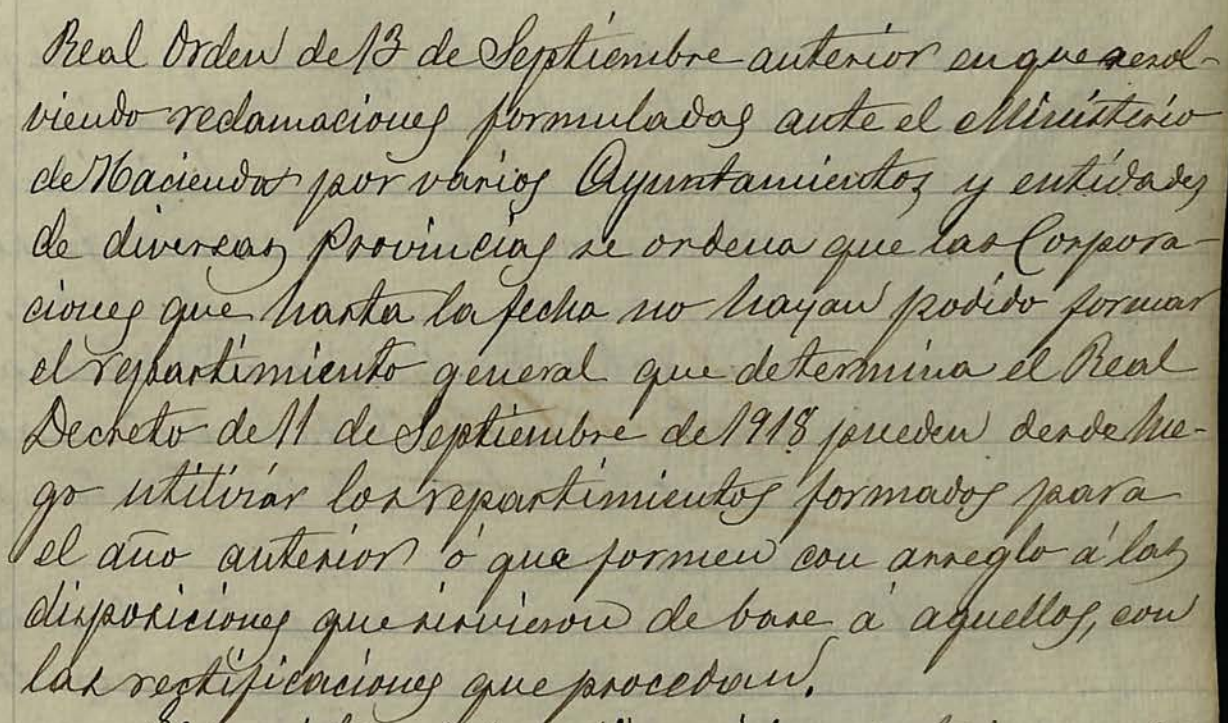 Real Orden de 13 de Septiembre anterior en que resol-
viendo reclamaciones formuladas ante el Ministerio
de Hacienda por varios Ayuntamientos y entidades
de diversas Provincias se ordena que las Corpora-
ciones que hasta la fecha no hayan podido formar
el repartimiento general que determina el Real
Decreto de 11 de Septiembre de 1918 pueden desde lue-
go utilizar los repartimientos formados para
el año anterior ó que formen con arreglo á las
disposiciones que sirvieron de base á aquellos, con
las rectificaciones que procedan.